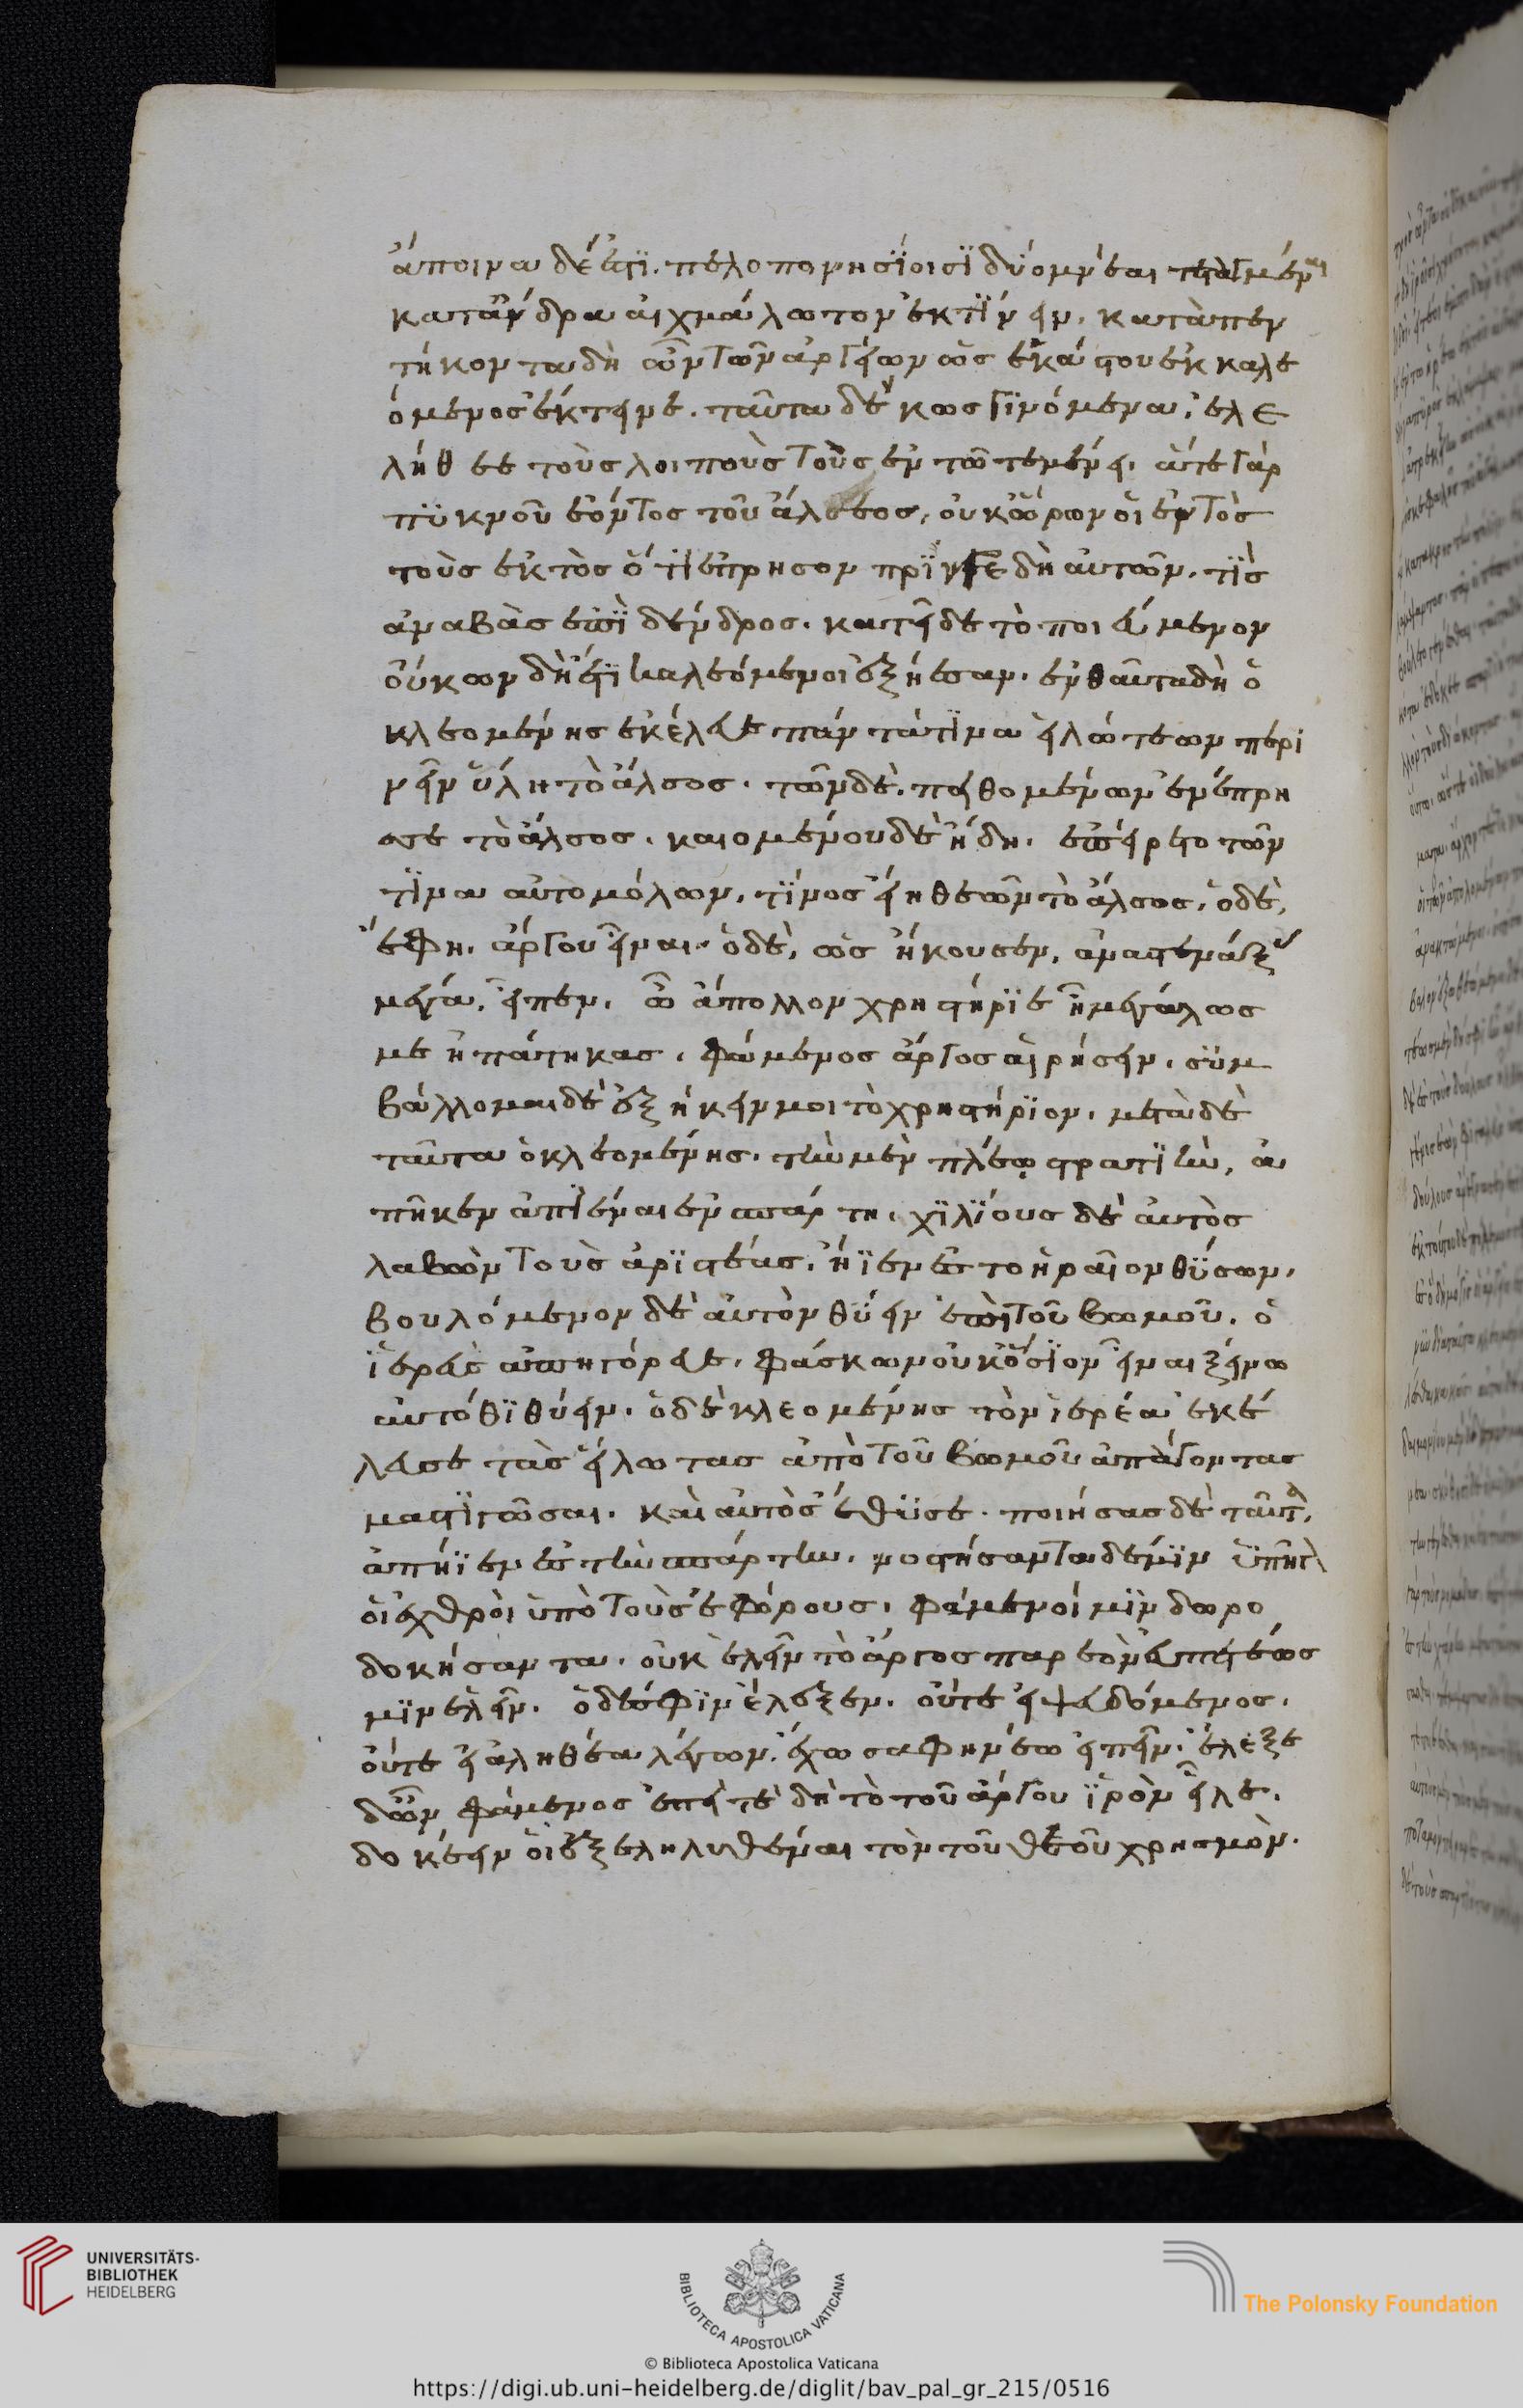 ἄποινα δέ ἐστι πελοπονησίοισι δύο μνέαι τεταγμέναι
κατ' ἄνδρα αἰχμάλωτον ἐκτίνειν. κατὰ πεν
τήκοντα δὴ ὦν τῶν ἀργείων ὡς ἑκάστους ἐκκαλε
όμενος ἔκτεινε. ταῦτα δέ κως γινόμενα, ἐλε
λήθεε τοὺς λοιποὺς τοὺς ἐν τῶ τεμένει. ἅτε γὰρ
πυκνοῦ ἐόντος τοῦ ἄλσεος, οὐκ ὥρων οἱ ἐντὸς
τοὺς ἐκτὸς ὅ τι ἔπρησσον πρίν γε δὴ αὐτῶν τὶς
ἀναβὰς ἐπὶ δένδρος. κατεῖδε τὸ ποιεύμενον
οὔκων δὴ ἔτι καλεόμενοι ἐξήεσαν. ἐνθαῦτα δὴ ὁ
κλεομένης ἐκέλευε πάντά τινα εἱλώτεων περι
νεῖν ὕλη τὸ ἄλσος. τῶν δὲ πειθομένων ἐνέπρη
σε τὸ ἄλσος. καιομένου δὲ ἤδη. ἐπείρετο τῶν
τινα αὐτομόλων, τίνος εἴη θεῶν τὸ ἄλσος, ὁ δὲ,
ἔφη. ἄργου εἶναι. ὁ δὲ, ὡς ἤκουσεν, ἀναστενάξας
μέγα, εἶπεν. ὦ ἄπολλον χρηστήριε ἦ μεγάλως
με ἠπάτηκας, φάμενος ἄργος αἱρήσειν. συμ
βάλλομαι δὲ ἐξήκειν μοι τὸ χρηστήριον. μετὰ δὲ
ταῦτα ὁ κλεομένης. τὴν μὲν πλέω στρατιὴν, ἀ
πῆκεν ἀπιέναι ἐν σπάρτη. χιλίους δὲ αὐτὸς
λαβὼν τοὺς ἀριστέας, ἤιεν ἐς τὸ ἡραῖον θύσων.
βουλόμενον δὲ αὐτὸν θύειν ἐπὶ τοῦ βωμοῦ. ὁ
ἱερεὺς ἀπηγόρευε. φάσκων οὐκ ὅσιον εἶναι ξείνω
αὐτόθι θύειν. ὁ δὲ κλεομένης τὸν ἱερέα ἐκέ
λευσε τὰς εἵλωτας ἀπὸ τοῦ βωμοῦ ἀπάγοντας
μαστιγῶσαι. καὶ αὐτὸς ἔθυσε. ποιήσας δὲ ταῦτα,
ἀπήιεν ἐς τὴν σπάρτην. νοστήσαντα δέ μιν ὑπῆγον
οἱ ἐχθροὶ ὑπὸ τοὺς ἐφόρους, φάμενοί μιν δωρο
δοκήσαντα. οὐκ ἑλεῖν τὸ ἄργος παρεὸν εὐπετέως
μιν ἑλεῖν. ὁ δέ σφιν ἔλεξεν. οὔτε εἰ ψευδόμενος.
οὔτε εἰ ἀληθέα λέγων, ἔχω σαφηνέω εἰπεῖν. ἔλεξε
δ' ὦν, φάμενος ἐπείτε δὴ τὸ τοῦ ἄργου ἱρὸν εἷλε.
δοκέειν οἱ ἐξεληλυθέναι τὸν τοῦ θεοῦ χρησμὸν.
UNIVERSITÄTS-
BIBLIOTHEK
HEIDELBERG
BIBLIOTECA APOSTOLICA VATICANA
The Polonsky Foundation
© Biblioteca Apostolica Vaticana
https://digi.ub.uni-heidelberg.de/diglit/bav_pal_gr_215/0516